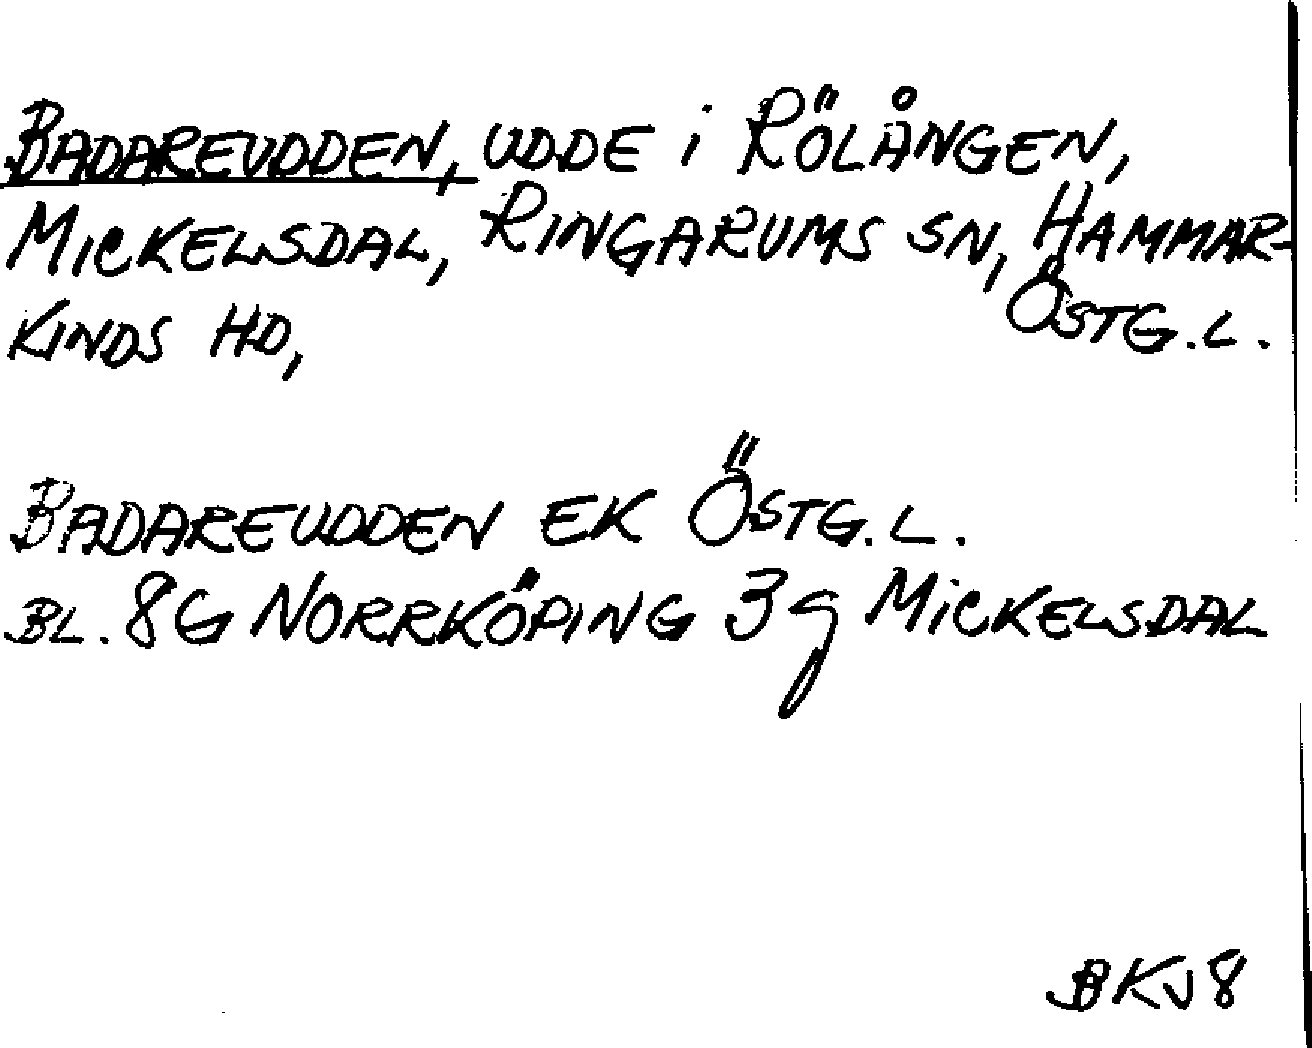 BADAREUDDEN, UDDE i RÖLÅNGEN,
MICKELSDAL, RINGARUMS SN, HAMMAR-
KINDS HD, ÖSTG.L.
BADAREUDDEN EK ÖSTG.L.
BL. 8G NORRKÖPING 3g MICKELSDAL
BKJ8